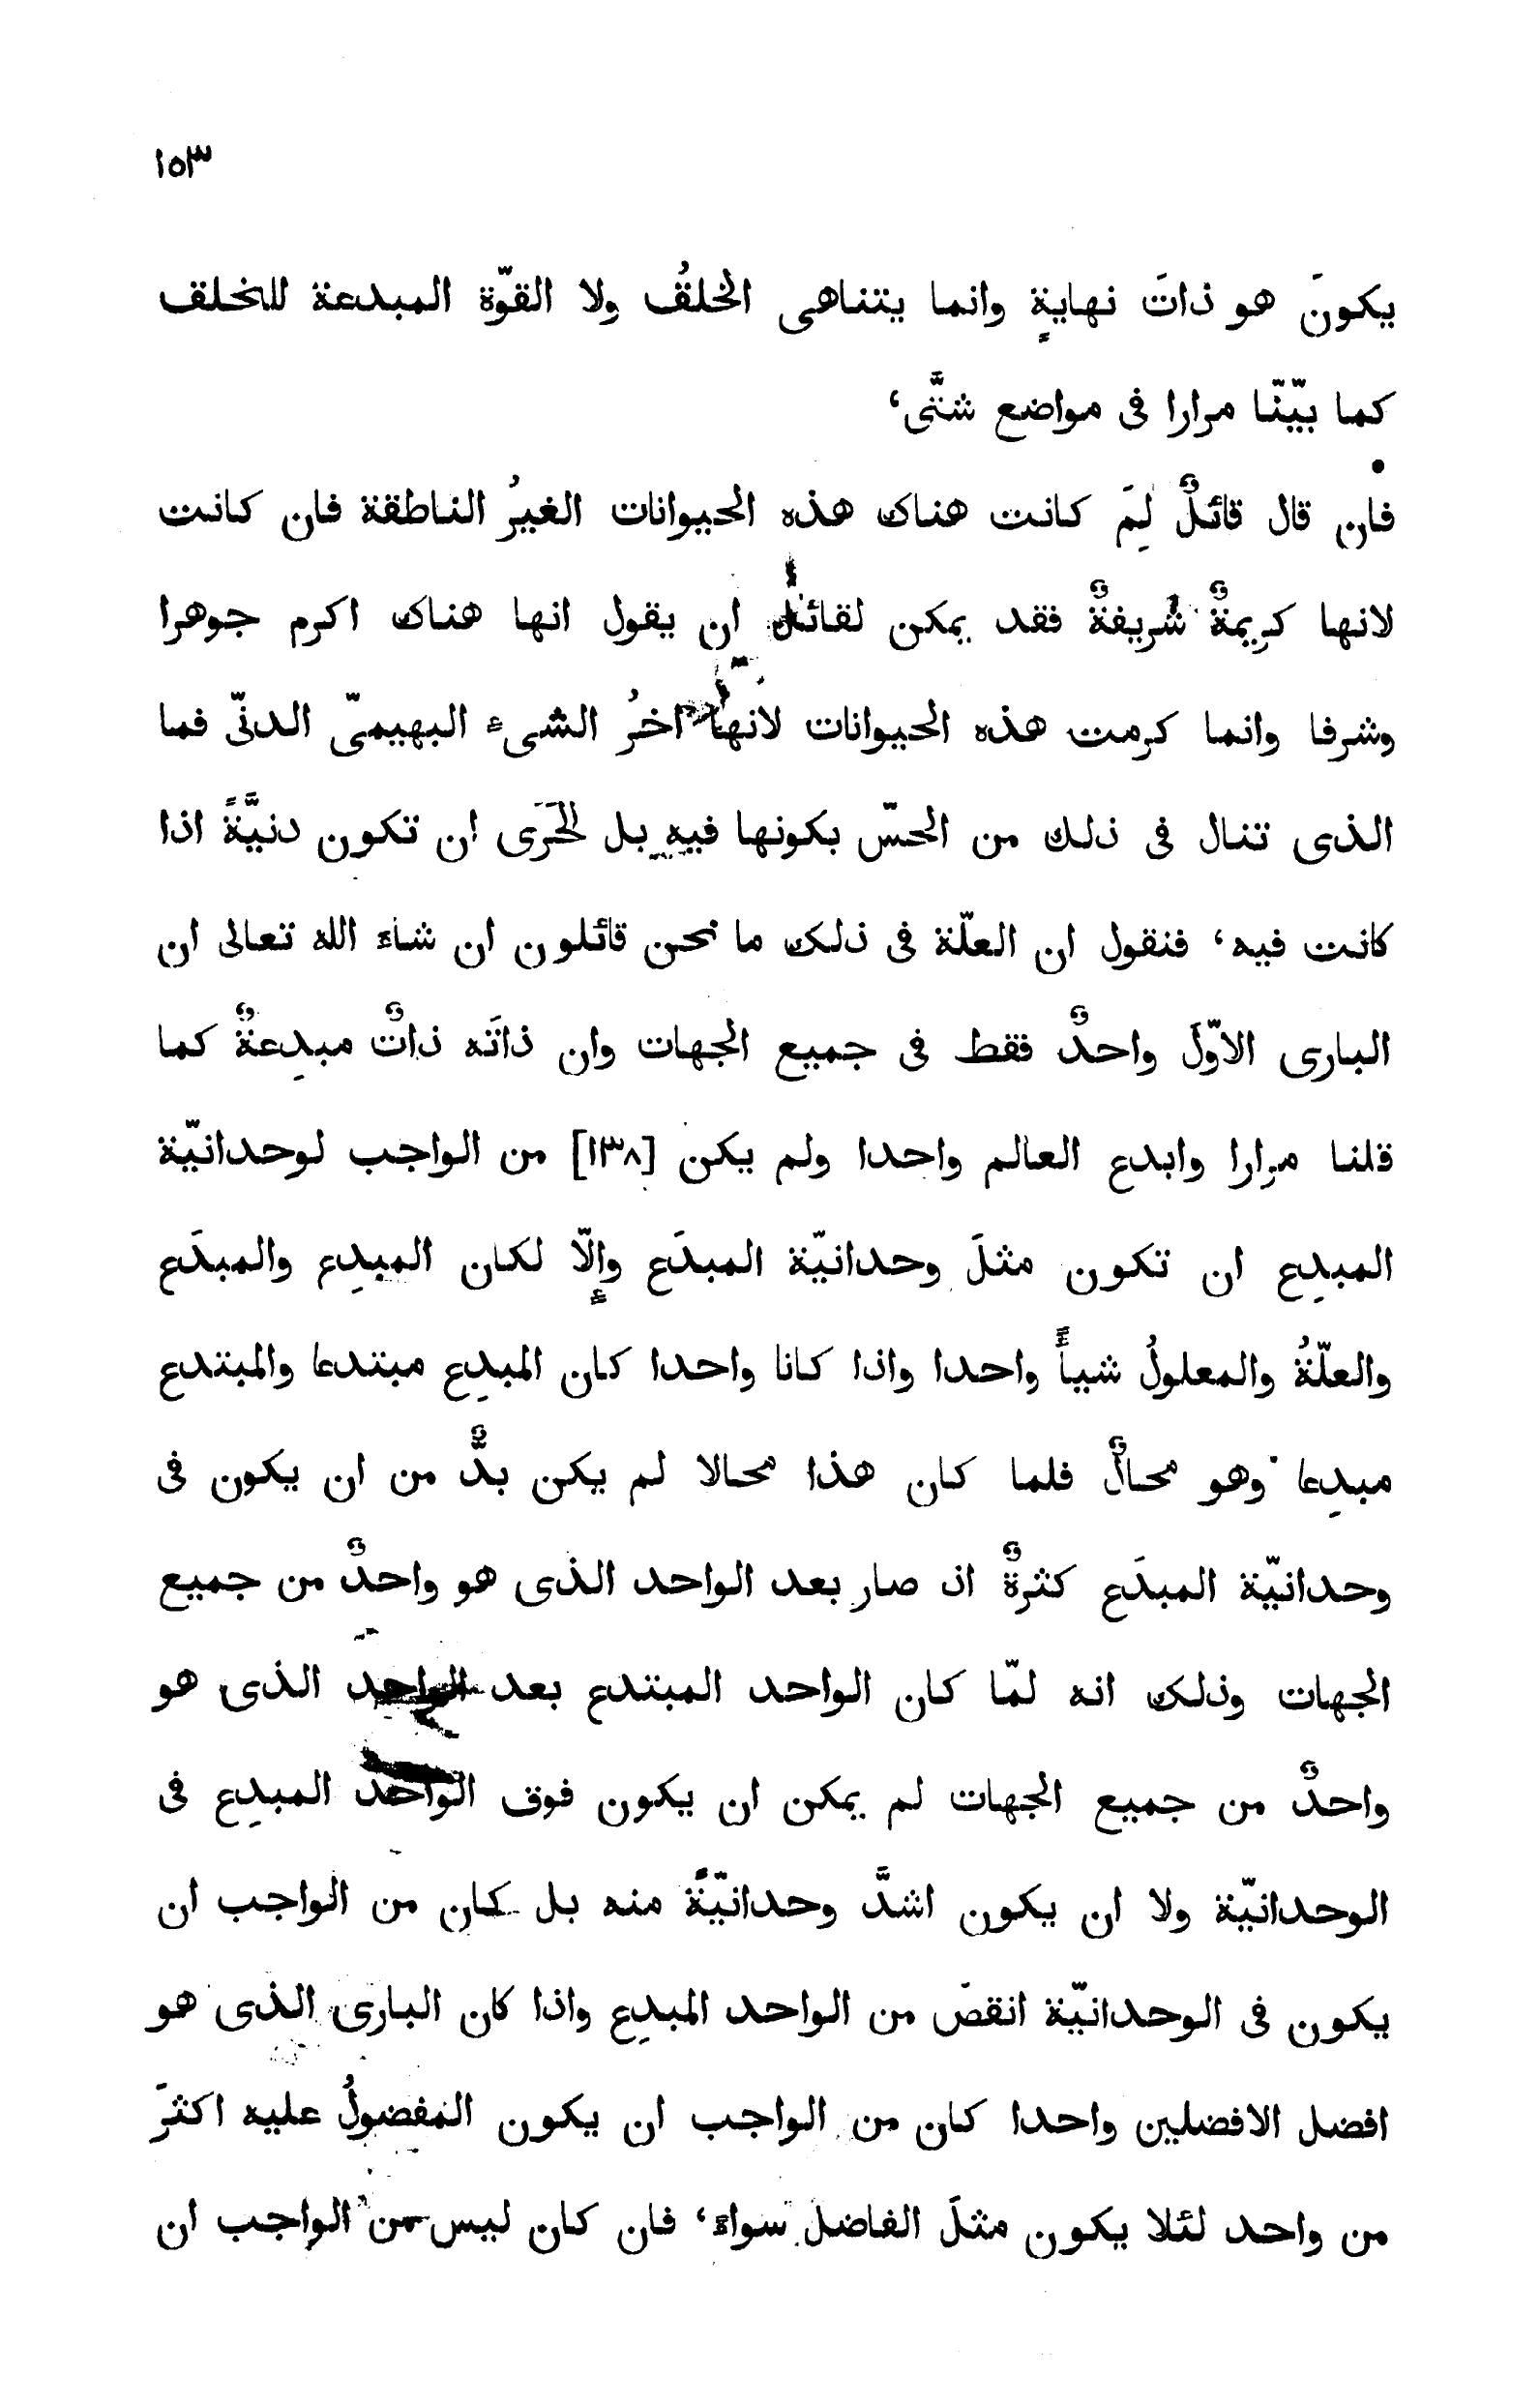 ١٥٣
يكونَ هو ذاتَ نهايةٍ وانما يتناهى الخلقُ ولا القوّة المبدعة للخلق
كما بيّنّا مرارا فى مواضع شتَّى،
فان قال قائلٌ لِمَ كانت هناك هذه الحيوانات الغيرُ الناطقة فان كانت
لانها كريمةٌ شريفةٌ فقد يمكن لقائل ان يقول انها هناك اكرم جوهرا
وشرفا وانما كرمت هذه الحيوانات لانها اخرُ الشىء البهيمىّ الدنىّ فما
الذى تنال فى ذلك من الحسّ بكونها فيه بل لَحَرَى ان تكون دنيَّةً اذا
كانت فيه، فنقول ان العلّة فى ذلك ما نحن قائلون ان شاء الله تعالى ان
البارى الاوّلَ واحدٌ فقط فى جميع الجهات وان ذاتَه ذاتٌ مبدِعةٌ كما
قلنا مرارا وابدع العالم واحدا ولم يكن [١٣٨] من الواجب لوحدانيّة
المبدِع ان تكون مثلَ وحدانيّة المبدَع وإلّا لكان المبدِع والمبدَع
والعلّةُ والمعلولُ شيأً واحدا واذا كانا واحدا كان المبدِع مبتدعا والمبتدع
مبدِعا وهو محالٌ فلما كان هذا محالا لم يكن بدٌّ من ان يكون فى
وحدانيّة المبدَع كثرةٌ اذ صار بعد الواحد الذى هو واحدٌ من جميع
الجهات وذلك انه لمّا كان الواحد المبتدع بعد الواحد الذى هو
واحدٌ من جميع الجهات لم يمكن ان يكون فوق الواحد المبدِع فى
الوحدانيّة ولا ان يكون اشدَّ وحدانيّةً منه بل كان من الواجب ان
يكون فى الوحدانيّة انقصَ من الواحد المبدِع واذا كان البارى الذى هو
افضل الافضلين واحدا كان من الواجب ان يكون المفضولُ عليه اكثرَ
من واحد لئلا يكون مثلَ الفاضل سواء، فان كان ليس من الواجب ان